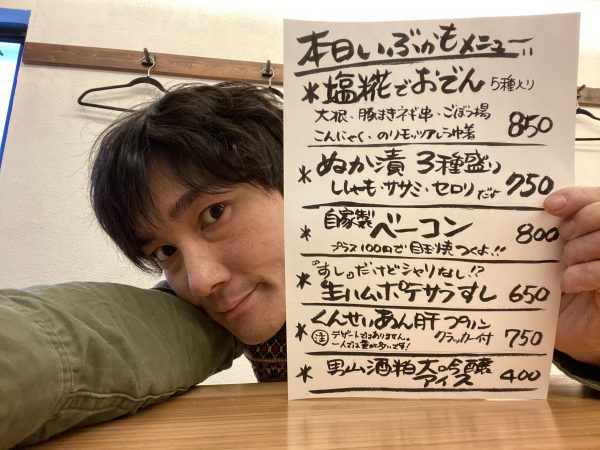 本日いぶかもメニュー!!
*塩糀でおでん 5種入り
大根、豚まきネギ串、ごぼう揚
こんにゃく、のりモッツァレラ巾着 850
*ぬか漬 3種盛り
ししゃも・ササミ・セロリだよ 750
*自家製ベーコン 800
プラス100円で目玉焼つくよ!!
*『すし』だけどシャリなし!?
生ハムポテサラすし 650
*くんせいあん肝プリン
クラッカー付 750
注 デザートではありません。
一人では量が多いです!
*男山酒粕大吟醸
アイス 400